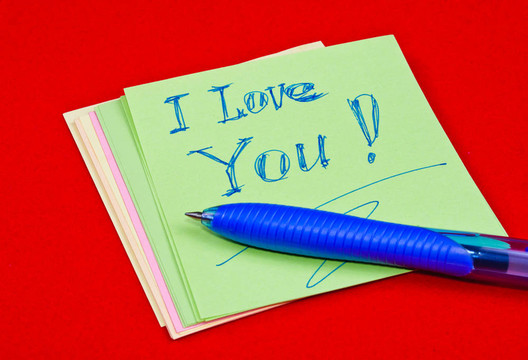 I Love
You!